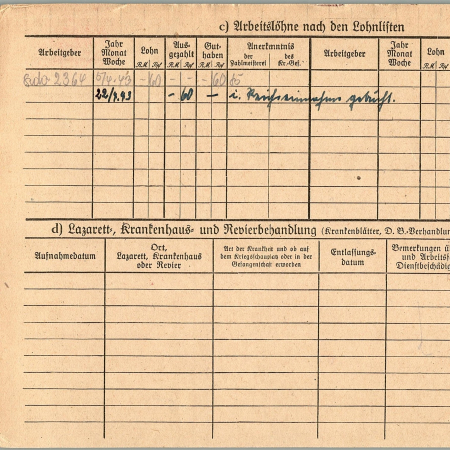 c) Arbeitslöhne nach den Lohnlisten
Arbeitgeber Jahr Monat Woche Lohn Ausgezahlt Guthaben Anerkenntnis Arbeitgeber Jahr Monat Woche Lohn
R.M. Rpf R.M. Rpf R.M. Rpf der Zahlmeisterei des Kr.-Gef. R.M. Rpf
2364 5/4.43 - 60 - - - 60
22/7.43 - 60 - i. Reichseinnahme gebucht.
d) Lazarett-, Krankenhaus- und Revierbehandlung (Krankenblätter, D. B.-Verhandlun
Aufnahmedatum Ort, Lazarett, Krankenhaus oder Revier Art der Krankheit und ob auf dem Kriegsschauplatz oder in der Gefangenschaft erworben Entlassungsdatum Bemerkungen ü und Arbeitsf Dienstbeschädig